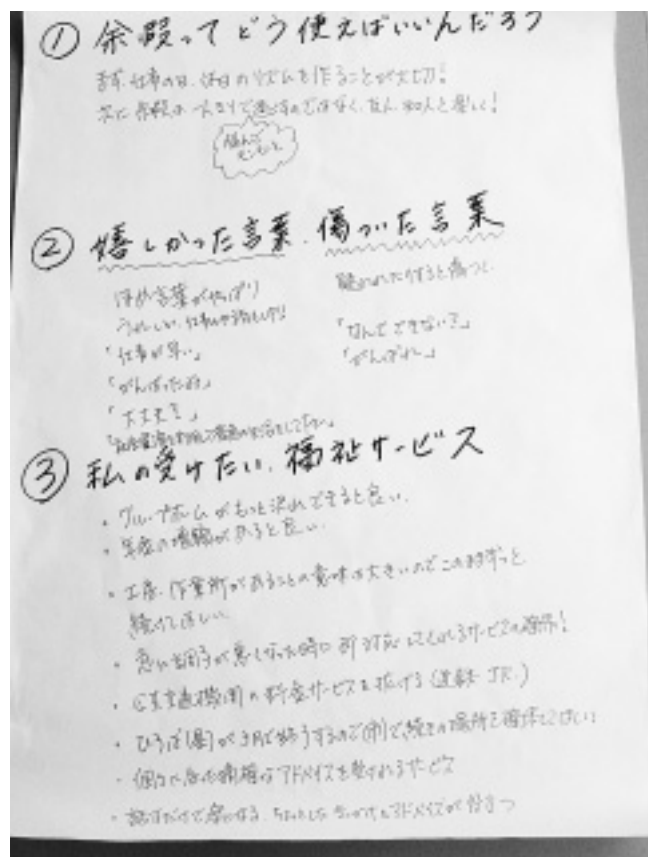 ① 余暇ってどう使えばいいんだろう
まず、仕事の日、休日のリズムを作ることが大切!
次に余暇は一人きりで過ごすのではなく、友人、知人と楽しく!
② 嬉しかった言葉、傷ついた言葉
ほめ言葉がやっぱり
うれしい、仕事も
「仕事が早い」
「がんばったね」
「大丈夫?」
「なんでできない?」
「がんばれ」
③ 私の受けたい、福祉サービス
・グループホームがもっと沢山できると良い、
・年金の増額があると良い、
・工房、作業所があることの意味は大きいのでこのままずっと
続けてほしい
・急に調子が悪くなった時に即対応してくれるサービスの確保!
・公共交通機関の料金サービスを拡げる(道鉄・JR.)
・ひろば(星)が3月で終了するので(市)で続きの場所を確保してほしい
・個々に
アドバイスを
サービス
・話すだけで楽になる、ちょっとした
アドバイスが役立つ